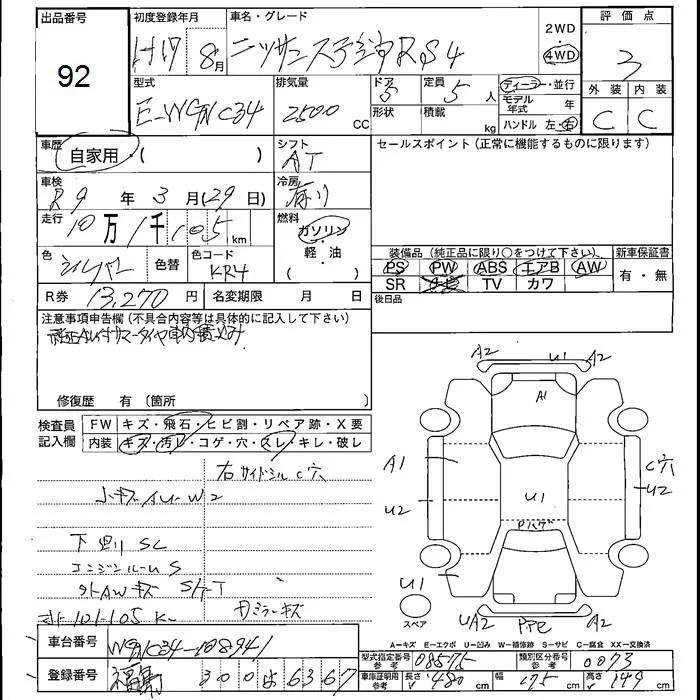 出品番号 初度登録年月 車名・グレード 2WD 評価点
92 H17 8月 RS4 4WD 3
型式 排気量 ドア 定員 ディーラー・並行 外装 内装
2500 CC 5 5人 モデル年式 年 C C
形状 積載 kg ハンドル 左・右
車歴 シフト セールスポイント(正常に機能するものに限ります)
自家用・( ) AT
車検 冷房
R9年3月(29日) 有り
走行 燃料
10万1千105km ガソリン
色 色替 色コード 軽・油 装備品(純正品に限り○をつけて下さい) 新車保証書
シルバー KR4 ( ) PS PW ABS エアB AW 有・無
SR ナビ TV カワ
R券 13,270円 名変期限 月 日 後日品
注意事項申告欄(不具合内容等は具体的に記入して下さい)
修復歴 有 〔箇所
検査員 FW キズ・飛石・ヒビ割・リペア跡・X要
記入欄 内装 キズ・汚レ・コゲ・穴・スレ・キレ・破レ
右サイドシルC穴
小キズAU-W2
下廻りSC
エンジンルームS
外AWキズ S/T
ミラーキズ
A2 U1 A2
A1
A1 C穴
U2 U2
U1
Pハゲ
U1
スペア
UA2 A2
A=キズ E=エクボ U=凹み W=補修跡 S=サビ C=腐食 XX=交換済
車台番号
型式指定番号 参考 08575 類別区分番号 参考 0073
登録番号 300 は 6367
車庫証明用 参考 長さ 480cm 幅 175cm 高さ 149cm